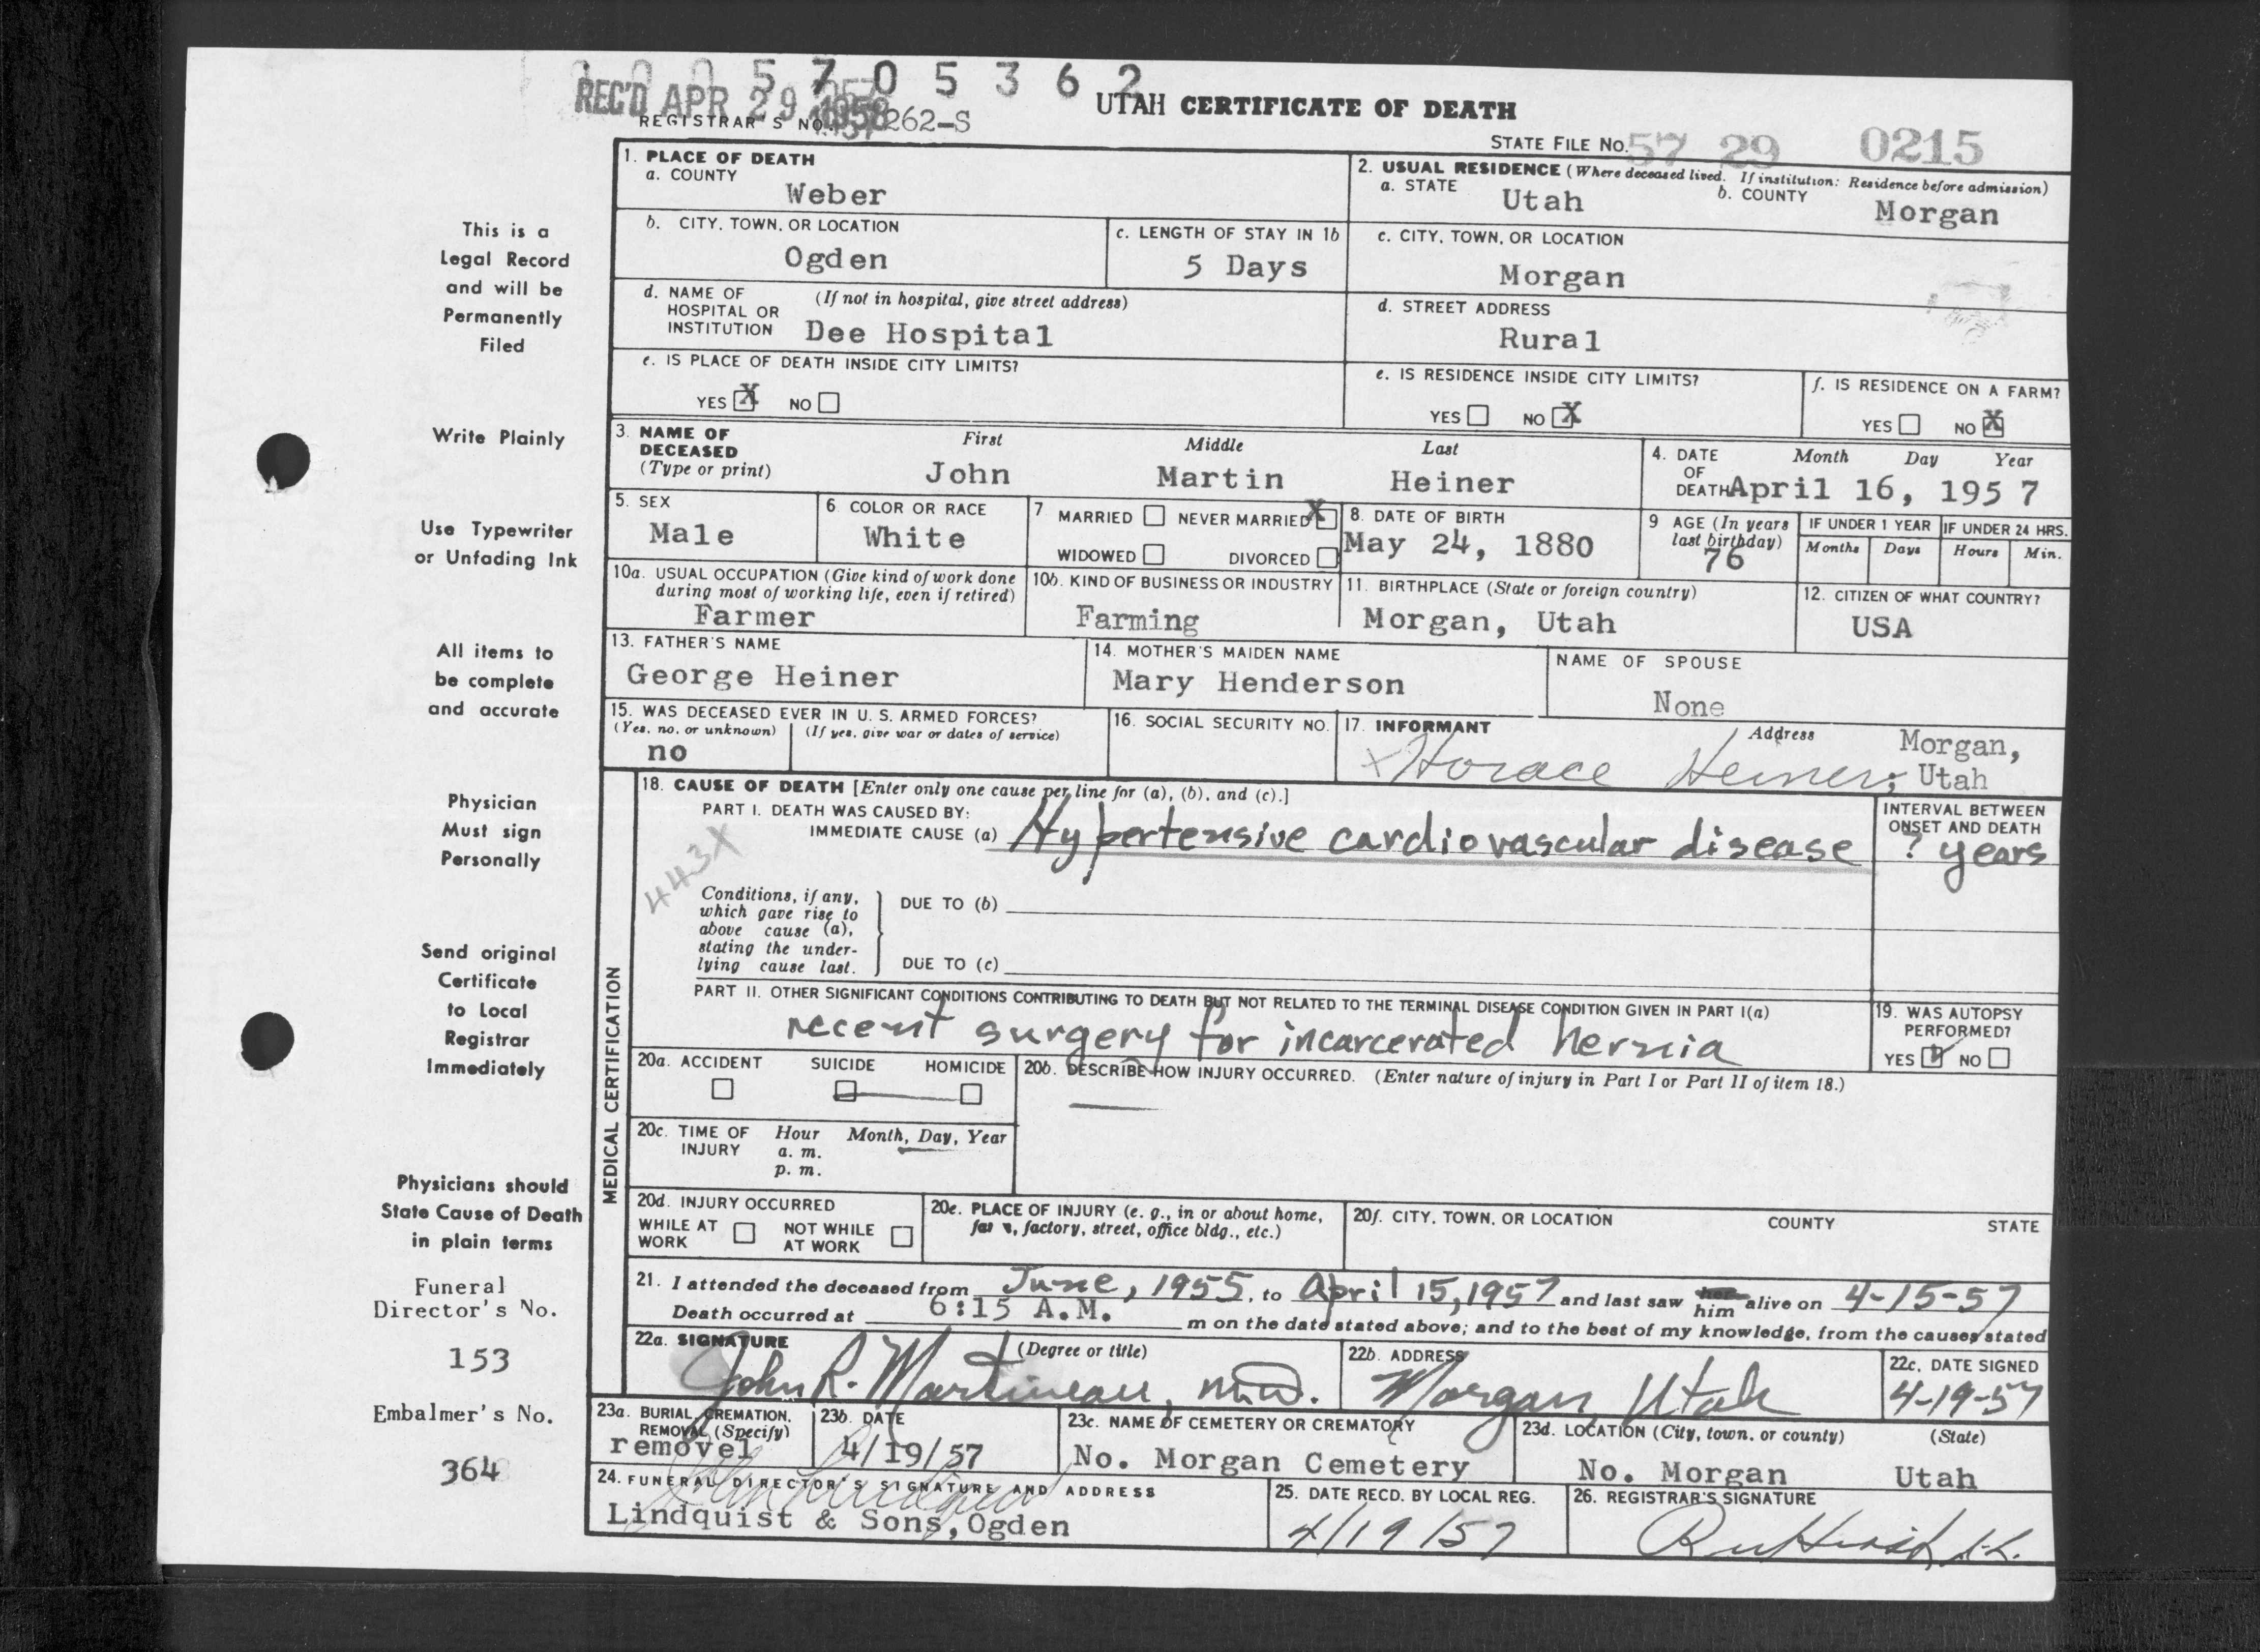 5 7 0 5 3 6 2
REC'D APR 29
REGISTRAR'S NO. 262-S
UTAH CERTIFICATE OF DEATH
STATE FILE NO. 57 29 0215
1. PLACE OF DEATH
a. COUNTY
Weber
2. USUAL RESIDENCE (Where deceased lived. If institution: Residence before admission)
a. STATE Utah b. COUNTY Morgan
b. CITY, TOWN, OR LOCATION
Ogden
c. LENGTH OF STAY IN 1b
5 Days
c. CITY, TOWN, OR LOCATION
Morgan
d. NAME OF HOSPITAL OR INSTITUTION (If not in hospital, give street address)
Dee Hospital
d. STREET ADDRESS
Rural
e. IS PLACE OF DEATH INSIDE CITY LIMITS?
YES X NO
e. IS RESIDENCE INSIDE CITY LIMITS?
YES NO X
f. IS RESIDENCE ON A FARM?
YES NO X
3. NAME OF DECEASED (Type or print)
First Middle Last
John Martin Heiner
4. DATE OF DEATH Month Day Year
April 16, 1957
5. SEX
Male
6. COLOR OR RACE
White
7. MARRIED NEVER MARRIED X
WIDOWED DIVORCED
8. DATE OF BIRTH
May 24, 1880
9 AGE (In years last birthday)
76
IF UNDER 1 YEAR
Months Days
IF UNDER 24 HRS.
Hours Min.
10a. USUAL OCCUPATION (Give kind of work done during most of working life, even if retired)
Farmer
10b. KIND OF BUSINESS OR INDUSTRY
Farming
11. BIRTHPLACE (State or foreign country)
Morgan, Utah
12. CITIZEN OF WHAT COUNTRY?
USA
13. FATHER'S NAME
George Heiner
14. MOTHER'S MAIDEN NAME
Mary Henderson
NAME OF SPOUSE
None
15. WAS DECEASED EVER IN U. S. ARMED FORCES?
(Yes, no, or unknown) (If yes, give war or dates of service)
no
16. SOCIAL SECURITY NO.
17. INFORMANT Address
x Horace Heiner, Morgan, Utah
MEDICAL CERTIFICATION
18. CAUSE OF DEATH [Enter only one cause per line for (a), (b), and (c).]
PART I. DEATH WAS CAUSED BY:
IMMEDIATE CAUSE (a) Hypertensive cardiovascular disease
INTERVAL BETWEEN ONSET AND DEATH
? years
443X
Conditions, if any, which gave rise to above cause (a), stating the underlying cause last.
DUE TO (b)
DUE TO (c)
PART II. OTHER SIGNIFICANT CONDITIONS CONTRIBUTING TO DEATH BUT NOT RELATED TO THE TERMINAL DISEASE CONDITION GIVEN IN PART I(a)
recent surgery for incarcerated hernia
19. WAS AUTOPSY PERFORMED?
YES NO
20a. ACCIDENT SUICIDE HOMICIDE
20b. DESCRIBE HOW INJURY OCCURRED. (Enter nature of injury in Part I or Part II of item 18.)
20c. TIME OF INJURY Hour Month, Day, Year
a. m.
p. m.
20d. INJURY OCCURRED
WHILE AT WORK NOT WHILE AT WORK
20e. PLACE OF INJURY (e. g., in or about home, farm, factory, street, office bldg., etc.)
20f. CITY, TOWN, OR LOCATION COUNTY STATE
21. I attended the deceased from June, 1955, to April 15, 1957 and last saw her him alive on 4-15-57
Death occurred at 6:15 A.M. m on the date stated above; and to the best of my knowledge, from the causes stated
22a. SIGNATURE (Degree or title)
John R. Martineau, M.D.
22b. ADDRESS
Morgan, Utah
22c. DATE SIGNED
4-19-57
23a. BURIAL, CREMATION, REMOVAL (Specify)
removel
23b. DATE
4/19/57
23c. NAME OF CEMETERY OR CREMATORY
No. Morgan Cemetery
23d. LOCATION (City, town, or county) (State)
No. Morgan Utah
24. FUNERAL DIRECTOR'S SIGNATURE AND ADDRESS
Lindquist & Sons, Ogden
25. DATE RECD. BY LOCAL REG.
4/19/57
26. REGISTRAR'S SIGNATURE
This is a
Legal Record
and will be
Permanently
Filed
Write Plainly
Use Typewriter
or Unfading Ink
All items to
be complete
and accurate
Physician
Must sign
Personally
Send original
Certificate
to Local
Registrar
Immediately
Physicians should
State Cause of Death
in plain terms
Funeral
Director's No.
153
Embalmer's No.
364